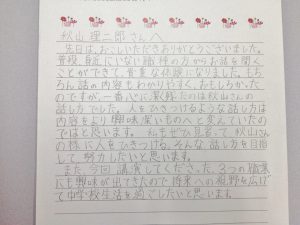 秋山 理二郎さんへ
先日は、おこしいただきありがとうございました。
普段、身近にいない職種の方からお話を聞く
ことができて、貴重な体験になりました。もち
ろん話の内容もわかりやすく、おもしろかった
のですが、一番心に
話し方でした。人をひきつけるような話し方は
内容をより興味深いものへと変えていたの
ではと思います。私もぜひ見習って、秋山さん
の様に人をひきつける、そんな話し方を目指
して、努力したいと思います。
また、今回講演してくださった、3つの職業
にも興味が出てきたので将来への視野を広げ
て中学校生活を過ごしたいと思います。